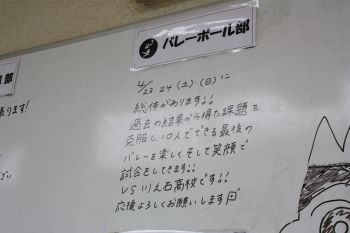 バレーボール部
部
ます!
4/23.24(土)(日)に
総体があります!!
過去の結果から得た課題を
克服し10人でできる最後の
バレーを楽しくそして笑顔で
試合をしてきます!!
VS 川之石高校です!!
応援よろしくお願いします